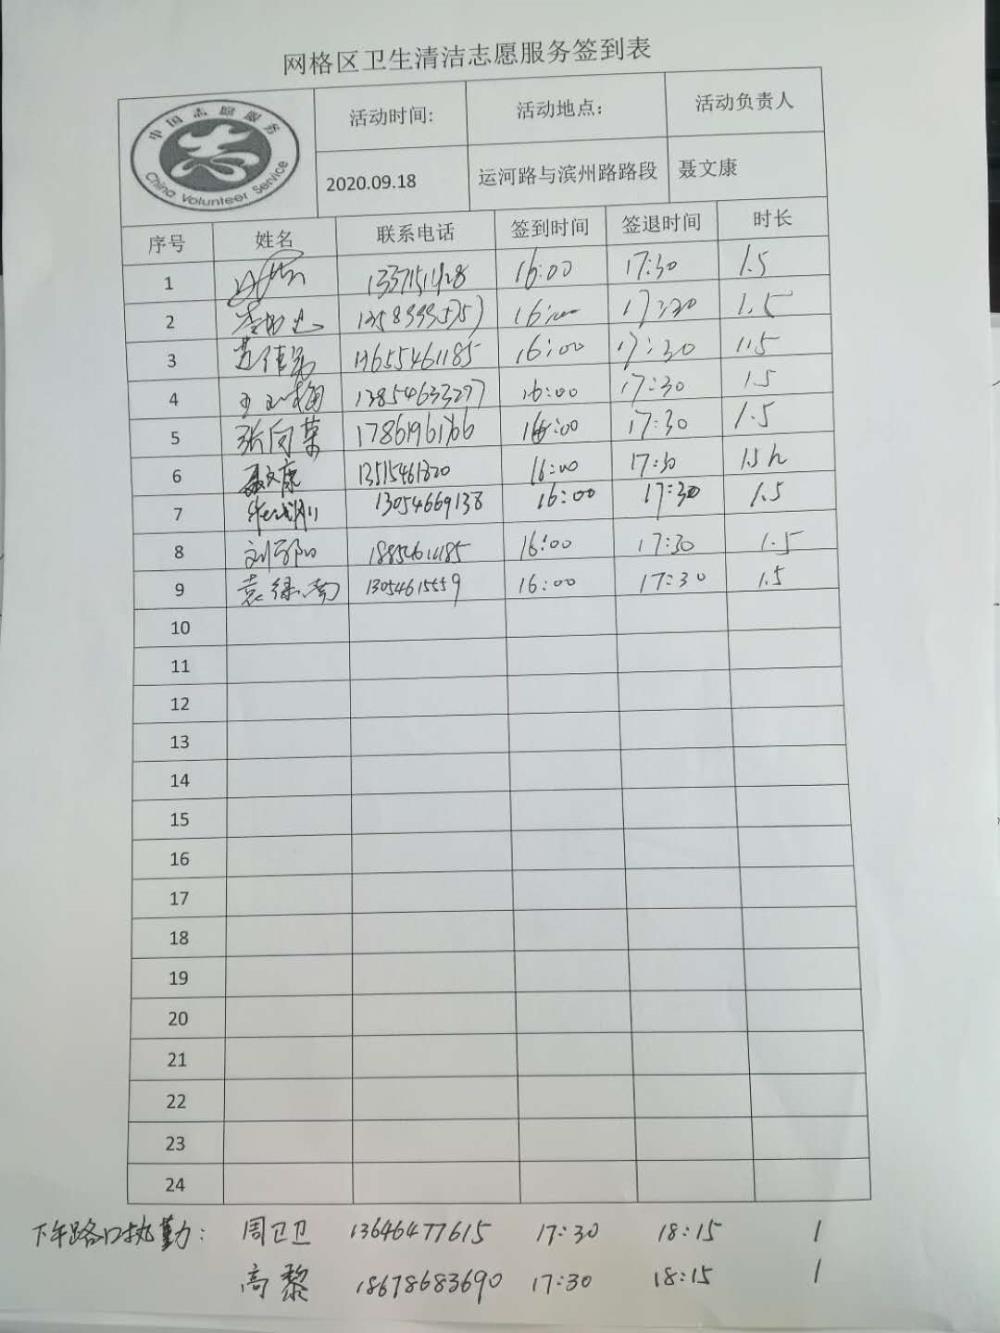 网格区卫生清洁志愿服务签到表
中国志愿服务
China Volunteer Service
活动时间: 活动地点: 活动负责人
2020.09.18 运河路与滨州路路段 聂文康
序号 姓名 联系电话 签到时间 签退时间 时长
1 16:00 17:30 1.5
2 17:30 1.5
3 16:00 17:30 1.5
4 13854633297 16:00 17:30 1.5
5 张向荣 16:00 17:30 1.5
6 聂文康 16:00 17:30 1.5h
7 13054669138 16:00 17:30 1.5
8 16:00 17:30 1.5
9 13054615559 16:00 17:30 1.5
10
11
12
13
14
15
16
17
18
19
20
21
22
23
24
下午路口执勤: 周卫卫 13646477615 17:30 18:15 1
高黎 18678683690 17:30 18:15 1